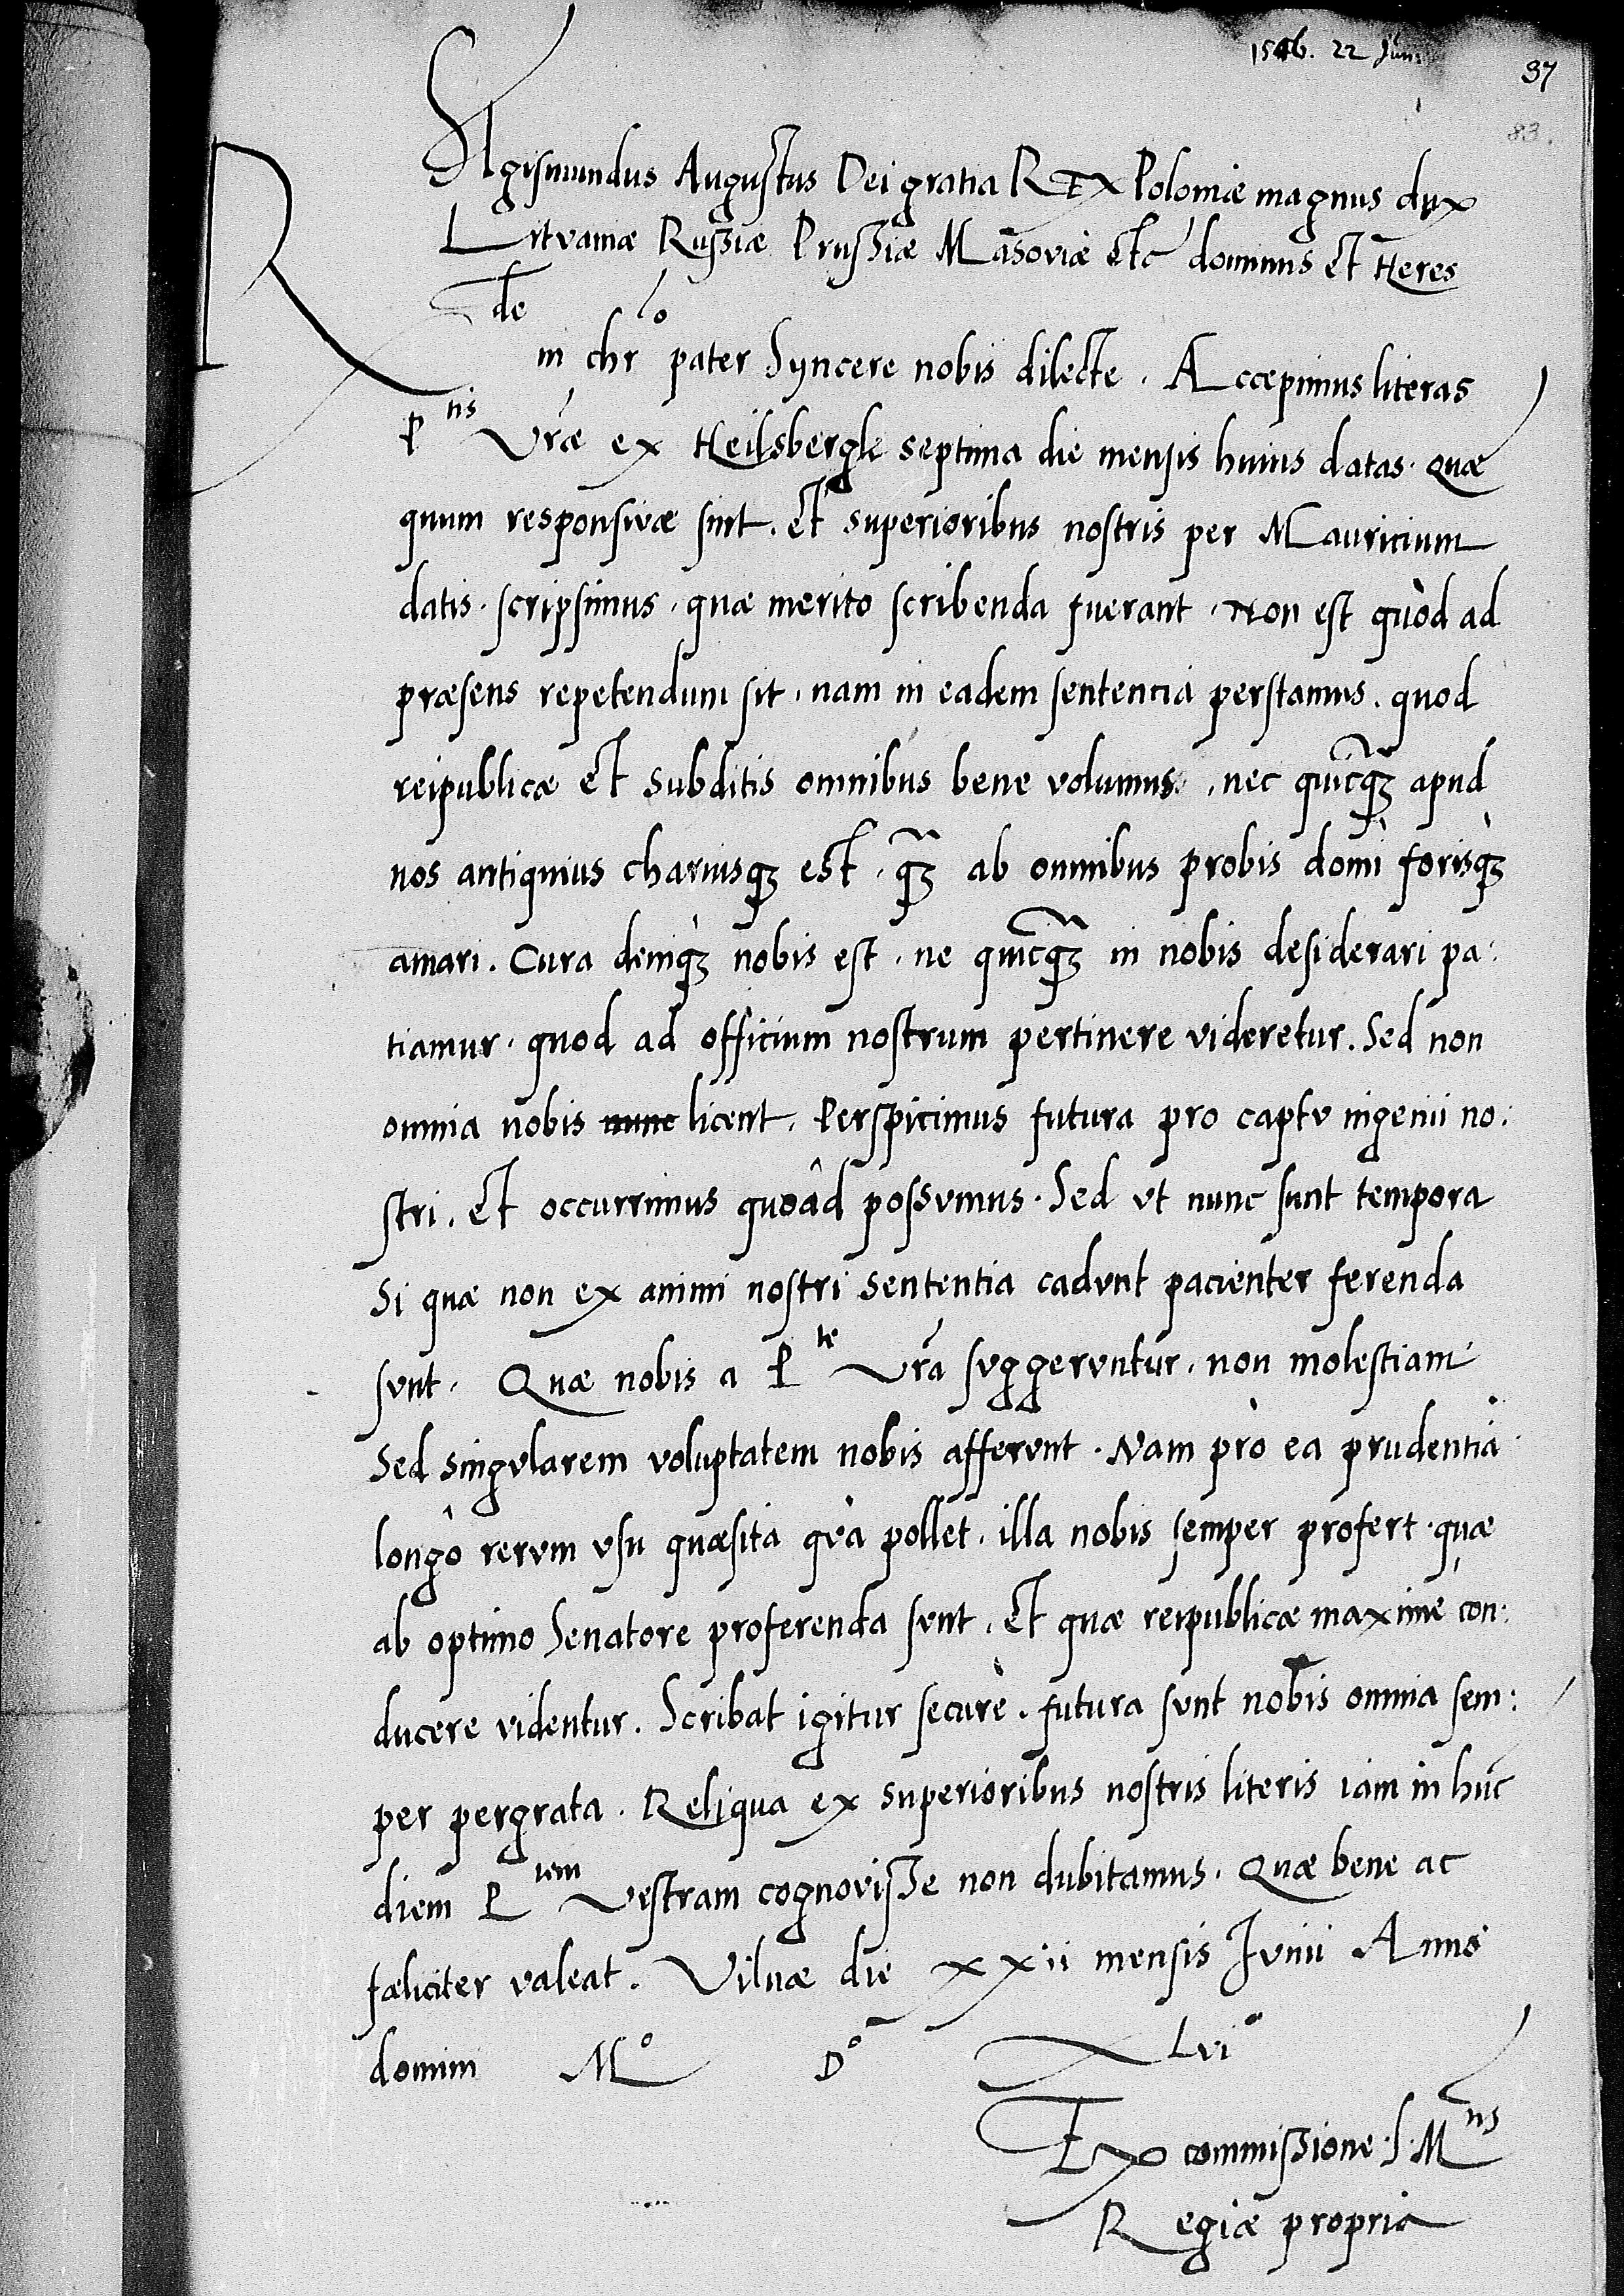 1546. 22 Jun.
37
83.
SIgismundus Augustus Dei gratia REX Poloniæ magnus dux
Litvaniæ Russiæ Prussiæ Masoviæ etc dominus et Heres
Rde in chrō pater Syncere nobis dilecte. Accepimus literas
Ptis Vrāe ex Heilsbergk septima die mensis huius datas. quæ
quum responsivæ sint. et superioribus nostris per Mauricium
datis. scripsimus. quæ merito scribenda fuerant. Non est quòd ad
præsens repetendum sit. nam in eadem sententia perstamus. quod
reipublicæ et subditis omnibus bene volumus. nec quicqꝫ apud
nos antiquius chariusqꝫ est. qꝫ ab omnibus probis domi forisqꝫ
amari. Cura deniqꝫ nobis est. ne quicqꝫ in nobis desiderari pa:
tiamur. quod ad officium nostrum pertinere videretur. Sed non
omnia nobis nunc licent. Perspicimus futura pro captv ingenii no:
stri. et occurrimus quoâd possvmus. Sed vt nunc sunt tempora
Si quæ non ex animi nostri sententia cadvnt pacienter ferenda
svnt. Quæ nobis a Pte Vrā svggervntur. non molestiam
Sed singvlarem voluptatem nobis affervnt. Nam prò ea prudentia
longô rervm vsu quæsita qva pollet. illa nobis semper profert. quæ
ab optimo Senatore proferenda svnt. et quæ reipublicæ maximè con:
ducere videntur. Scribat igitur securè. futura svnt nobis omnia sem:
per pergrata. Reliqua ex superioribus nostris literis iam in hūc
diem Ptem Vestram cognovisse non dubitamus. Quæ bene ac
fæliciter valeat. Vilnæ die xxii mensis Jvnii Anno
domini Mo Do Lvio
Ex commissione S. Mtis
Regiæ propria